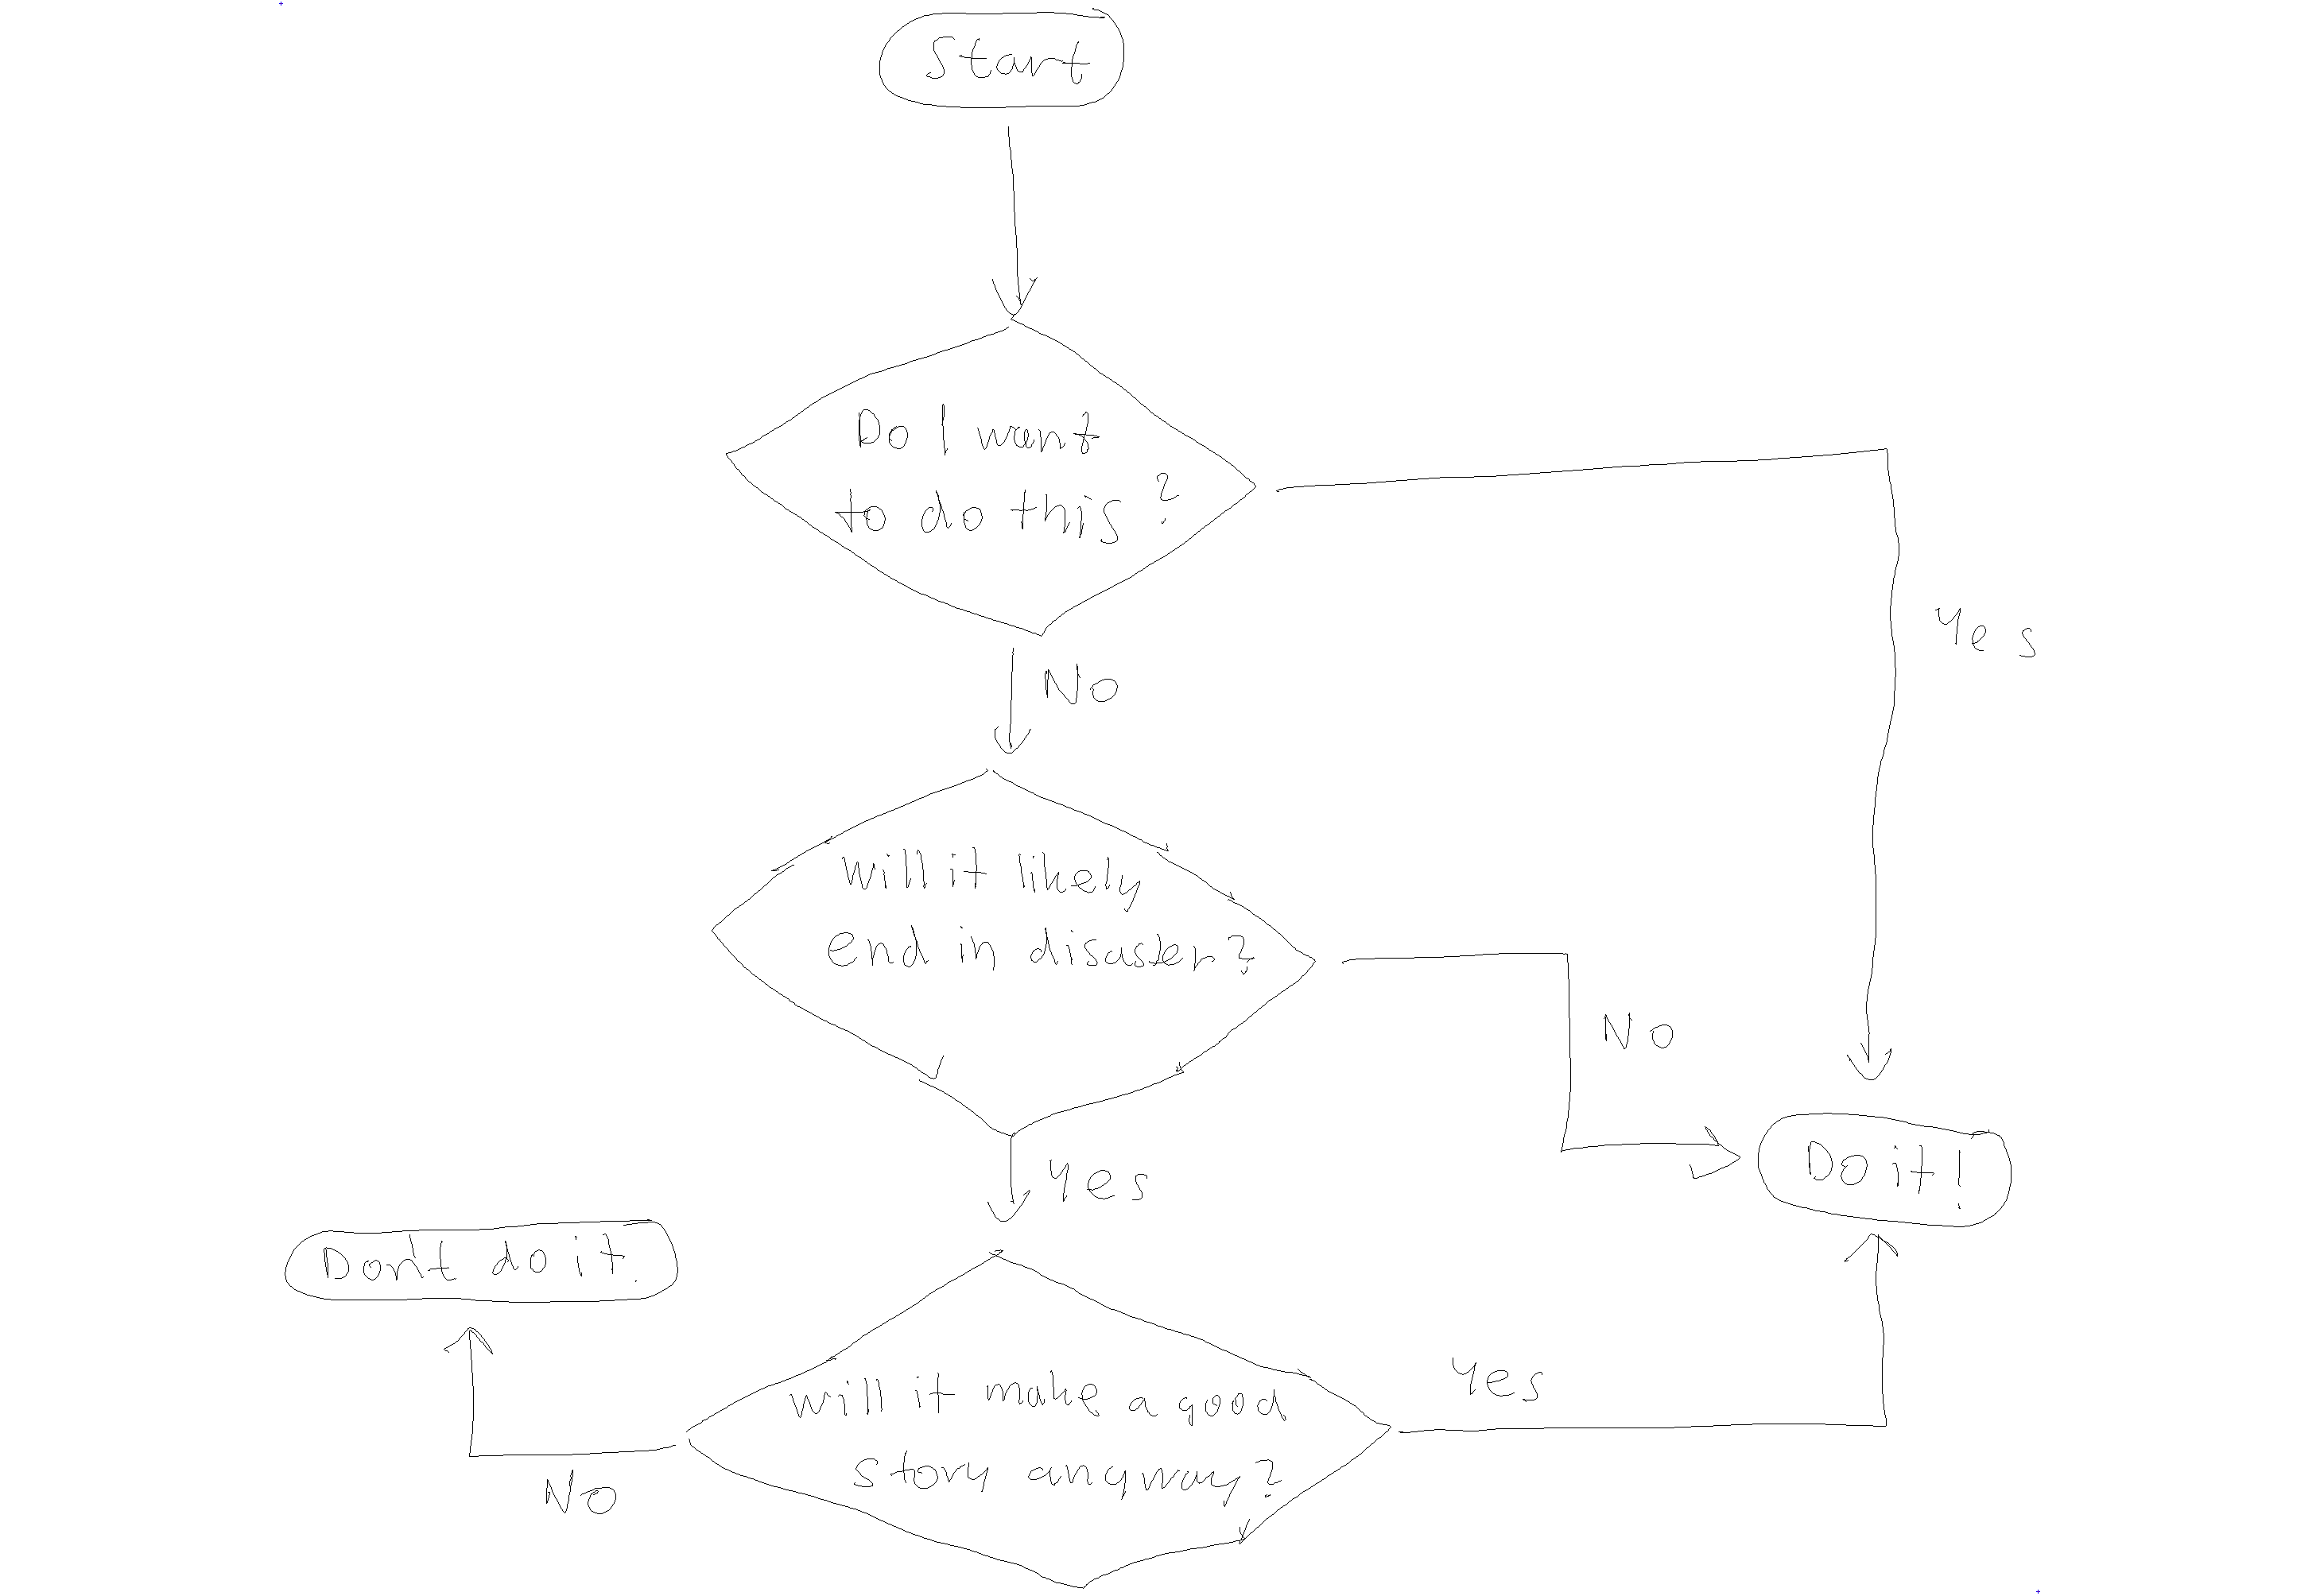 Start
Do I want
to do this?
Yes
No
will it likely
end in disaster?
No
Do it!
Yes
Don't do it.
will it make a good
story anyway?
Yes
No